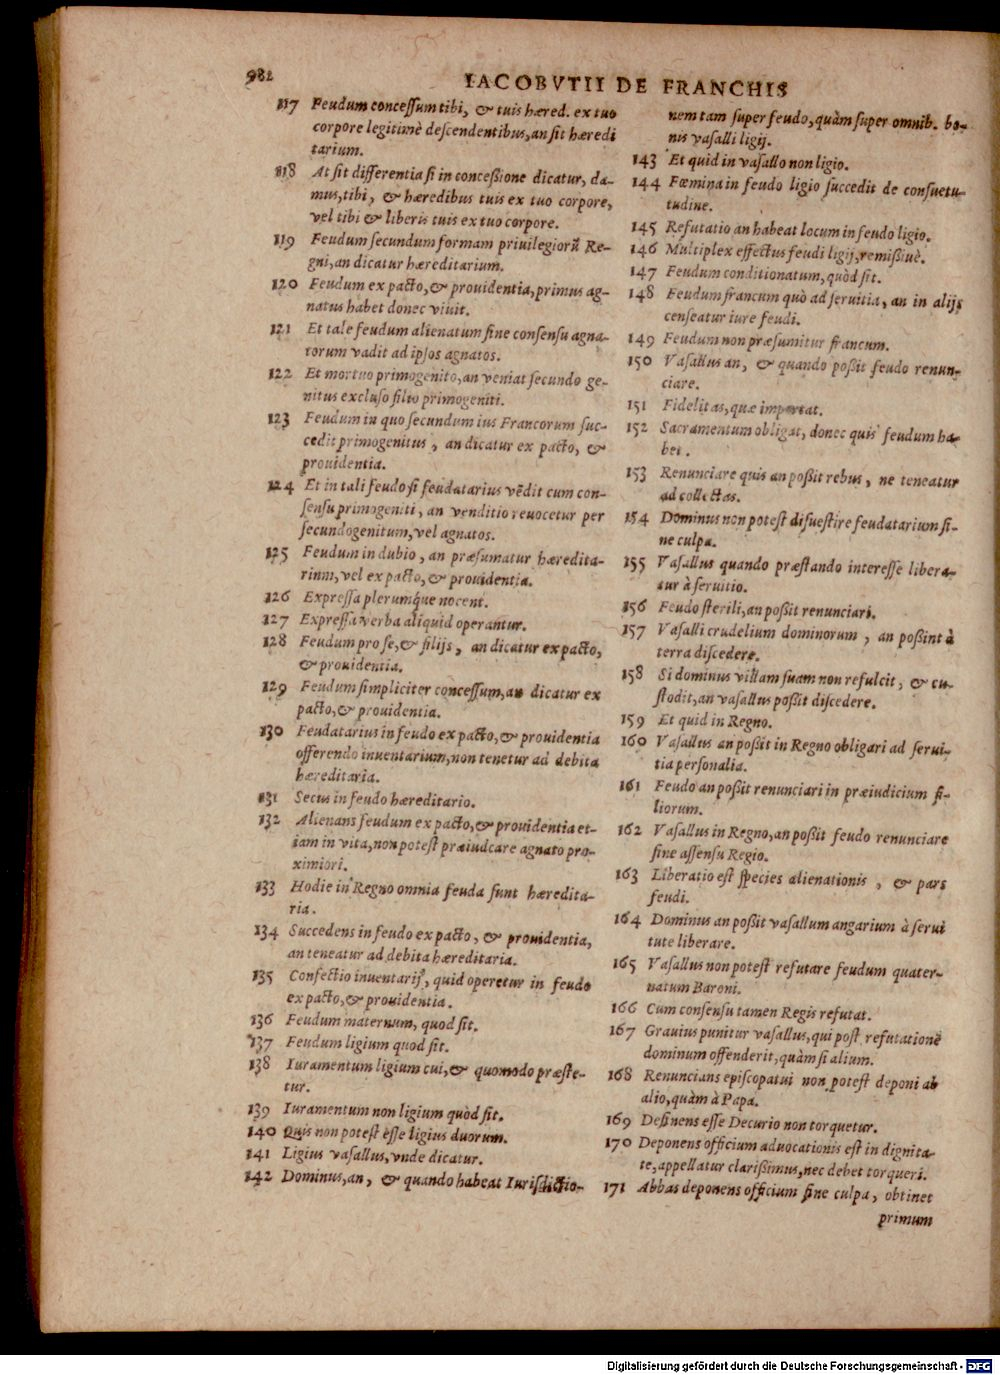 982
IACOBVTII DE FRANCHIS
117 Feudum concessum tibi, & tuis hæred. ex tuo
corpore legitimè descendentibus, an sit hæredi
tarium.
118 At sit differentia si in concessione dicatur, da-
mus, tibi, & hæredibus tuis ex tuo corpore,
vel tibi & liberis tuis ex tuo corpore.
119 Feudum secundum formam priuilegiorũ Re-
gni, an dicatur hæreditarium.
120 Feudum ex pacto, & prouidentia, primus ag-
natus habet donec viuit.
121 Et tale feudum alienatum sine consensu agna-
torum vadit ad ipsos agnatos.
122 Et mortuo primogenito, an veniat secundo ge-
nitus excluso filio primogeniti.
123 Feudum in quo secundum ius Francorum suc-
cedit primogenitus, an dicatur ex pacto, &
prouidentia.
124 Et in tali feudo si feudatarius vẽdit cum con-
sensu primogeniti, an venditio reuocetur per
secundogenitum, vel agnatos.
125 Feudum in dubio, an præsumatur hæredita-
rium, vel ex pacto, & prouidentia.
126 Expressa plerumque nocent.
127 Expressa verba aliquid operantur.
128 Feudum pro se, & filijs, an dicatur ex pacto,
& prouidentia.
129 Feudum simpliciter concessum, an dicatur ex
pacto, & prouidentia.
130 Feudatarius in feudo ex pacto, & prouidentia
offerendo inuentarium, non tenetur ad debita
hæreditaria.
131 Secus in feudo hæreditario.
132 Alienans feudum ex pacto, & prouidentia et-
iam in vita, non potest præiudcare agnato pro-
ximiori.
133 Hodie in Regno omnia feuda sunt hæredita-
ria.
134 Succedens in feudo ex pacto, & prouidentia,
an teneatur ad debita hæreditaria.
135 Confectio inuentarij, quid operetur in feudo
ex pacto, & prouidentia.
136 Feudum maternum, quod sit.
137 Feudum ligium quod sit.
138 Iuramentum ligium cui, & quomodo præste-
tur.
139 Iuramentum non ligium quòd sit.
140 Quis non potest esse ligius duorum.
141 Ligius vasallus, vnde dicatur.
142 Dominus, an, & quando habeat Iurisdictio-
nem tam super feudo, quàm super omnib. bo-
nis vasalli ligij.
143 Et quid in vasallo non ligio.
144 Fœmina in feudo ligio succedit de consuetu-
tudine.
145 Refutatio an habeat locum in feudo ligio.
146 Multiplex effectus feudi ligij, remissiuè.
147 Feudum conditionatum, quòd sit.
148 Feudum francum quò ad seruitia, an in alijs
censeatur iure feudi.
149 Feudum non præsumitur francum.
150 Vasallus an, & quando possit feudo renun-
ciare.
151 Fidelitas, quæ importat.
152 Sacramentum obligat, donec quis feudum ha-
bet.
153 Renunciare quis an possit rebus, ne teneatur
ad collectas.
154 Dominus non potest disuestire feudatarium si-
ne culpa.
155 Vasallus quando præstando interesse libera-
tur à seruitio.
156 Feudo sterili, an possit renunciari.
157 Vasalli crudelium dominorum, an possint à
terra discedere.
158 Si dominus villam suam non refulcit, & cu-
stodit, an vasallus possit discedere.
159 Et quid in Regno.
160 Vasallus an possit in Regno obligari ad serui-
tia personalia.
161 Feudo an possit renunciari in præiudicium fi-
liorum.
162 Vasallus in Regno, an possit feudo renunciare
sine assensu Regio.
163 Liberatio est species alienationis, & pars
feudi.
164 Dominus an possit vasallum angarium à serui
tute liberare.
165 Vasallus non potest refutare feudum quater-
natum Baroni.
166 Cum consensu tamen Regis refutat.
167 Grauius punitur vasallus, qui post refutationẽ
dominum offenderit, quàm si alium.
168 Renuncians episcopatui non potest deponi ab
alio, quàm à Papa.
169 Desinens esse Decurio non torquetur.
170 Deponens officium aduocationis est in dignita-
te, appellatur clarissimus, nec debet torqueri.
171 Abbas deponens officium sine culpa, obtinet
primum
Digitalisierung gefördert durch die Deutsche Forschungsgemeinschaft - DFG